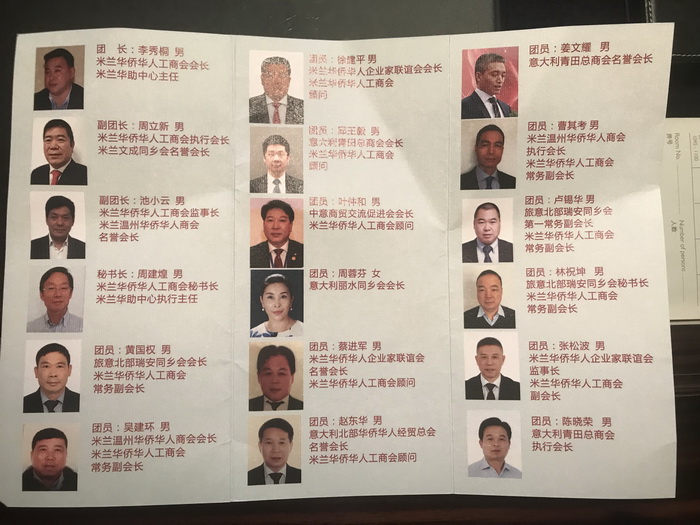 团 长：李秀桐 男
米兰华侨华人工商会会长
米兰华助中心主任
副团长：周立新 男
米兰华侨华人工商会执行会长
米兰文成同乡会名誉会长
副团长：池小云 男
米兰华侨华人工商会监事长
米兰温州华侨华人商会
名誉会长
秘书长：周建煌 男
米兰华侨华人工商会秘书长
米兰华助中心执行主任
团员：黄国权 男
旅意北部瑞安同乡会会长
米兰华侨华人工商会
常务副会长
团员：吴建环 男
米兰温州华侨华人商会会长
米兰华侨华人工商会
常务副会长
团员：徐建平 男
米兰华侨华人企业家联谊会会长
米兰华侨华人工商会
顾问
团员：邱王毅 男
意大利青田总商会会长
米兰华侨华人工商会
顾问
团员：叶仲和 男
中意商贸交流促进会会长
米兰华侨华人工商会顾问
团员：周蓉芬 女
意大利丽水同乡会会长
团员：蔡进军 男
米兰华侨华人企业家联谊会
名誉会长
米兰华侨华人工商会顾问
团员：赵东华 男
意大利北部华侨华人经贸总会
名誉会长
米兰华侨华人工商会顾问
团员：姜文耀 男
意大利青田总商会名誉会长
团员：曹其考 男
米兰温州华侨华人商会
执行会长
米兰华侨华人工商会
常务副会长
团员：卢锡华 男
旅意北部瑞安同乡会
第一常务副会长
米兰华侨华人工商会
常务副会长
团员：林祝坤 男
旅意北部瑞安同乡会秘书长
米兰华侨华人工商会
常务副会长
团员：张松波 男
米兰华侨华人企业家联谊会
监事长
米兰华侨华人工商会
副会长
团员：陈晓荣 男
意大利青田总商会
执行会长
Room No.
房号
Number of persons
人数